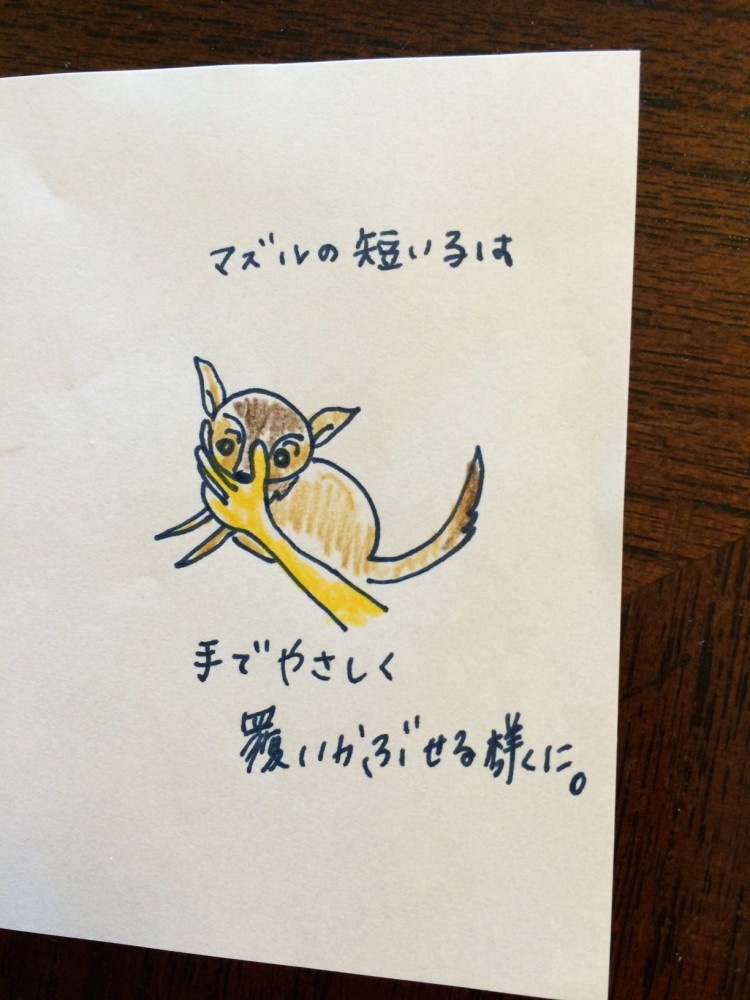 マズルの短い子は
手でやさしく
覆いかぶせる様に。